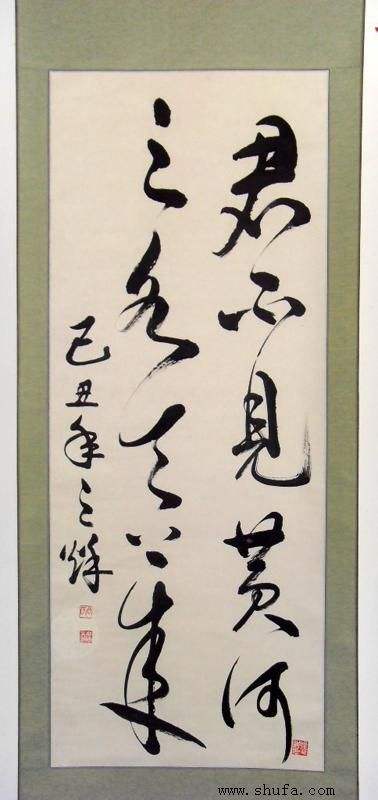 君不见黄河
之水天上来
己丑年之
www.shufa.com